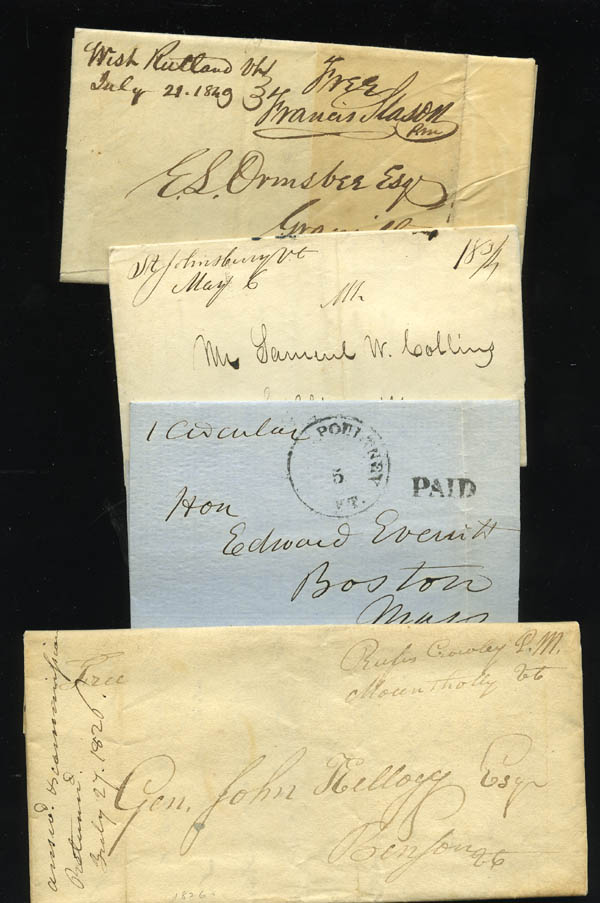 West Rutland Vt
July 21. 1849
Free
Francis Slason
P.m
E. S. Ormsbee Esqr
St Johnsbury Vt
May 6
18 3/4
Mr
Mr Samuel W. Collins
1 Circular
POULTNEY
5
VT.
PAID
Hon
Edward Everitt
Boston
Mass
Free
Rufus Crowley P. M.
Mount Holly Vt
Gen. John Kellogg Esqr
Benson Vt
ansd. &
Returnd.
July 27. 1826.
1826